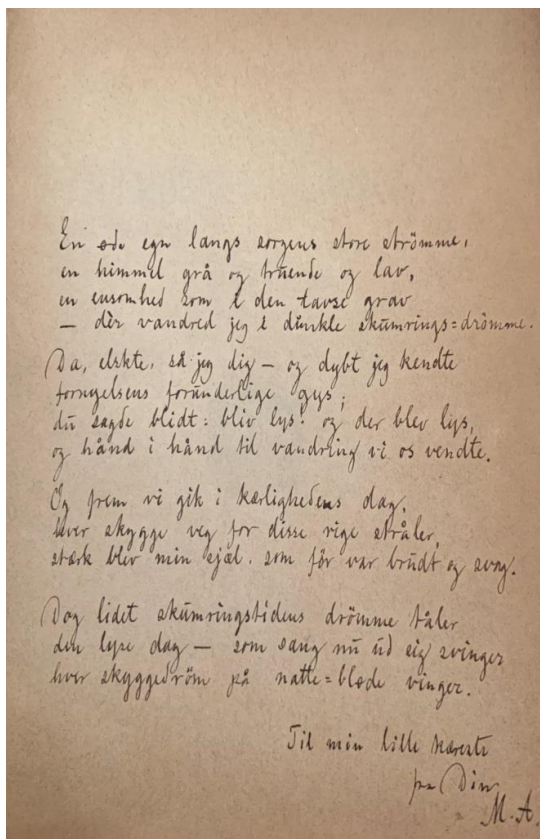 En øde egn langs sorgens store strömme,
en himmel grå og truende og lav,
en ensomhed som i den tavse grav
— dèr vandred jeg i dunkle skumrings=drömme.
Da, elskte, så jeg dig — og dybt jeg kendte
fornyelsens forunderlige gys;
du sagde blidt: bliv lys! og der blev lys,
og hånd i hånd til vandring vi os vendte.
Og frem vi gik i kærlighedens dag,
hver skygge veg for disse rige stråler,
stærk blev min sjæl, som för var brudt og svag.
Dog lidet skumringstidens drömme tåler
den lyse dag — som sang nu ud sig svinger
hver skyggedröm på natte=bløde vinger.
Til min lille kæreste
fra Din
M. A.